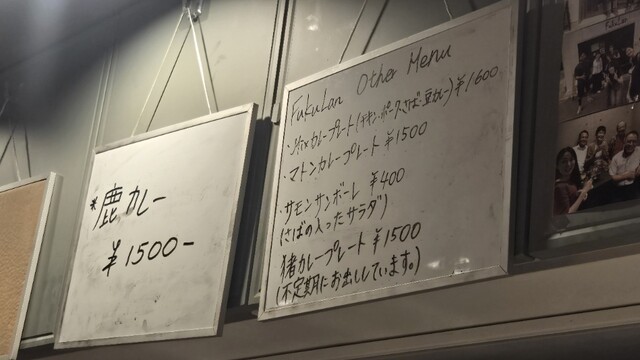 *鹿カレー
¥1500-
FukuLan Other Menu
・Mixカレープレート(チキン・ポーク・さば・豆カレー)¥1,600
・マトンカレープレート ¥1500
・サモンサンボーレ ¥400
(さばの入ったサラダ)
猪カレープレート ¥1500
(不定期にお出ししています。)